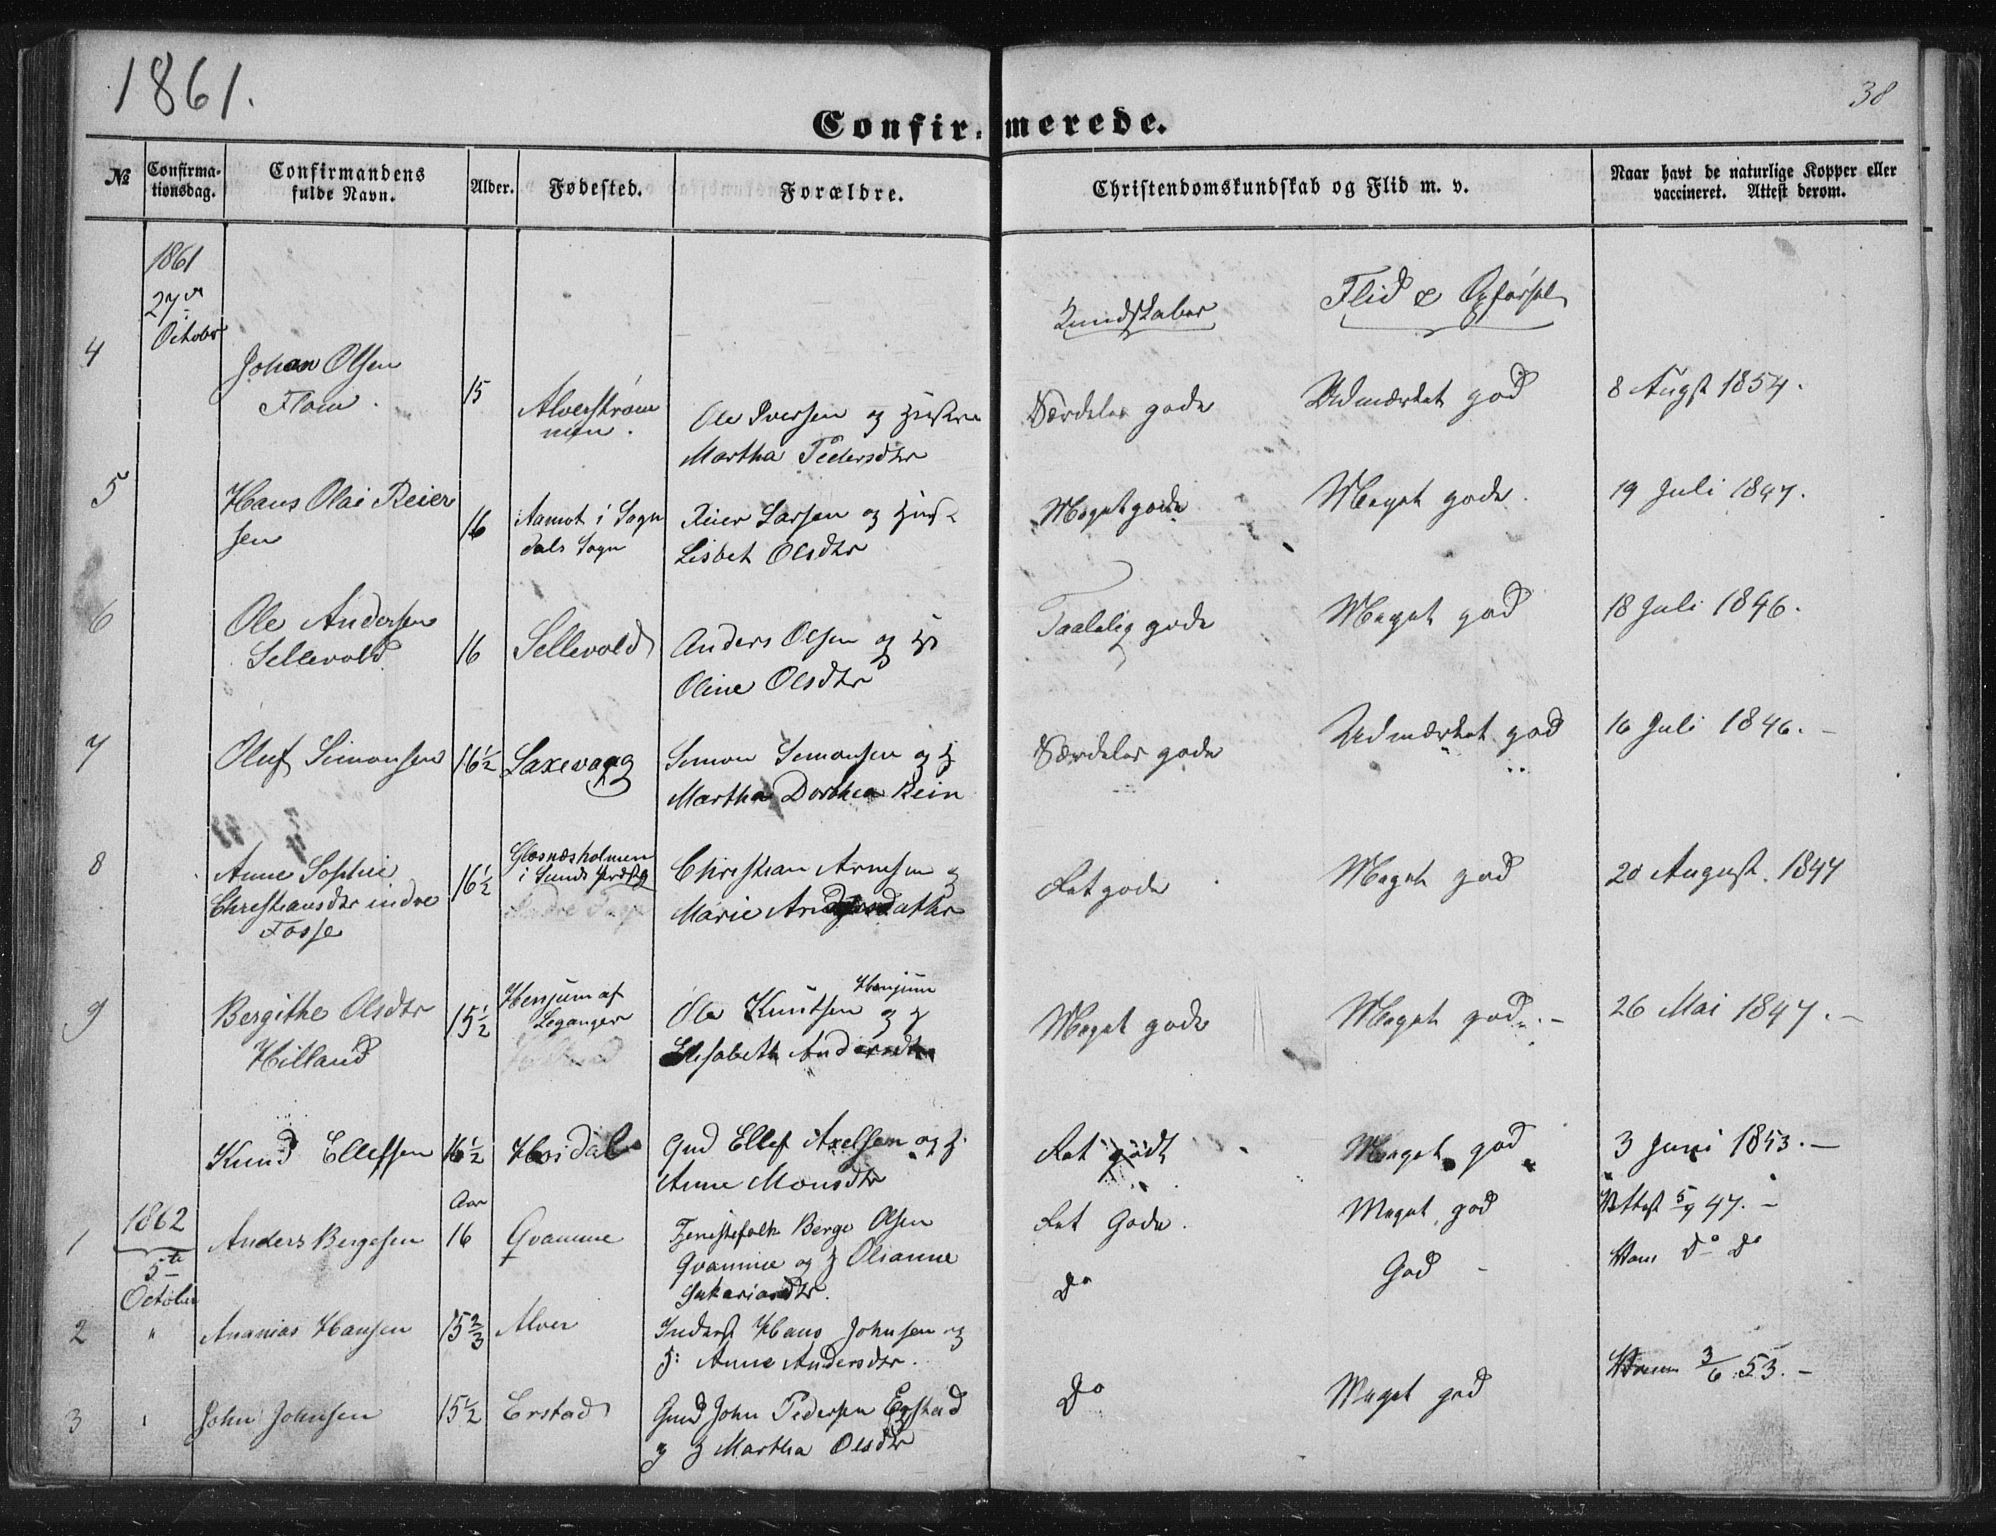 1861.
38
Confirmerede.
№
Confirmationsdag.
Confirmandens fulde Navn.
Alder.
Fødested.
Forældre.
Christendomskundskab og Flid m. v.
Naar havt de naturlige Kopper eller vaccineret. Attest derom.
1861
27de
October
Kundskaber
Flid & Opførsel
4
Johan Olsen
Flom.
15
Alverstrøm
men.
Ole Iversen og Hustru
Martha Pedersdtr
Særdeles gode
Udmærket god
8 Augst 1854.
5
Hans Olai Reier
sen
16
Aamot i Sogn
dals Sogn
Reier Larsen og Hust
Lisbet Olsdtr
Meget gode
Meget gode.
19 Juli 1847.
6
Ole Andersen
Sellevold
16
Sellevold
Anders Olsen og H
Oline Olsdtr
Taalelig gode
Meget god
18 Juli 1846.
7
Oluf Simonsen
16½
Saxevaag
Simon Simonsen og H
Martha Dorthea Rein
Særdeles gode
Udmærket god
16 Juli 1846. –
8
Anne Sophie
Christiansdtr indre
Fosse
16½
Glæsnæsholmen
i Sunds Præstg
Christian Arnesen og
Marie Andersdatter
Ret gode
Meget god
20 August. 1847
9
Bergithe Olsdtr
Hilland
15½
Henjum af
Leganger
Ole Knutsen Henjum
og H
Elisabeth Andersdtr
Meget gode
Meget god. –
26 Mai 1847. –
Knud Ellefsen
16½
Hosdal
Gmd Ellef Axelsen og H.
Anne Monsdtr
Ret godt
Meget god
3 Juni 1853. –
1862
5te
October
Aar
1
Anders Bergesen
16
Qvamme
Tjenestefolk Berge Olsen
Qvamme og H Olianne
Sakariasdtr.
Ret Gode.
Meget god
Attest 5/9 47. –
2
"
Ananias Hansen
15⅔
Alver
Inderst Hans Johnsen og
H: Anne Andersdtr.
Do
God –
do do
3
John Johnsen
15½
Erstad
Gmd John Pedersen Erstad
og H Martha Olsdtr
Do
Meget god
3/6 53. –